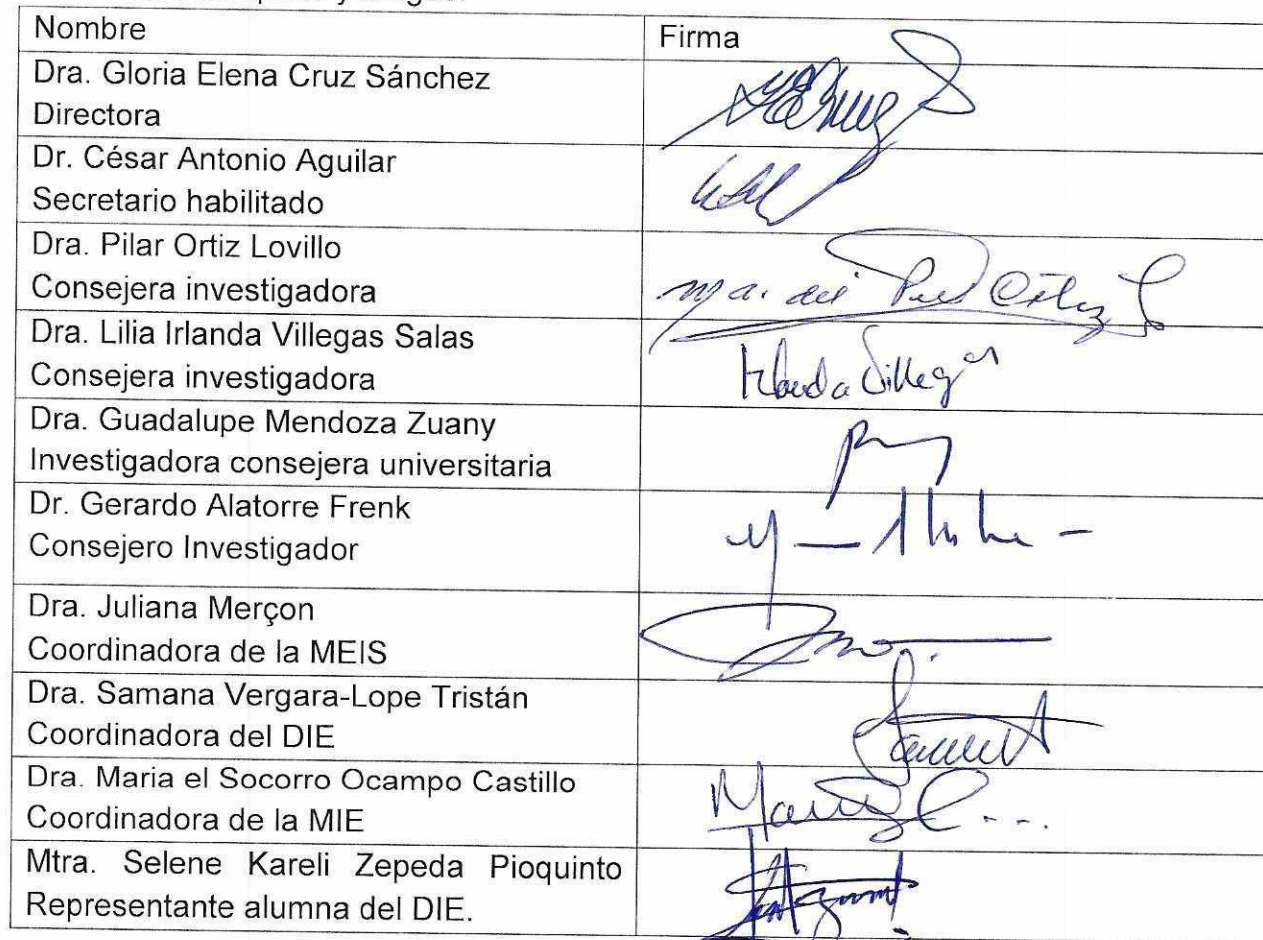 Nombre
Firma
Dra. Gloria Elena Cruz Sánchez
Directora
Dr. César Antonio Aguilar
Secretario habilitado
Dra. Pilar Ortiz Lovillo
Consejera investigadora
Ma. del Pilar Ortiz L
Dra. Lilia Irlanda Villegas Salas
Consejera investigadora
Irlanda Villegas
Dra. Guadalupe Mendoza Zuany
Investigadora consejera universitaria
Dr. Gerardo Alatorre Frenk
Consejero Investigador
Dra. Juliana Merçon
Coordinadora de la MEIS
Dra. Samana Vergara-Lope Tristán
Coordinadora del DIE
Dra. Maria el Socorro Ocampo Castillo
Coordinadora de la MIE
Mtra. Selene Kareli Zepeda Pioquinto
Representante alumna del DIE.